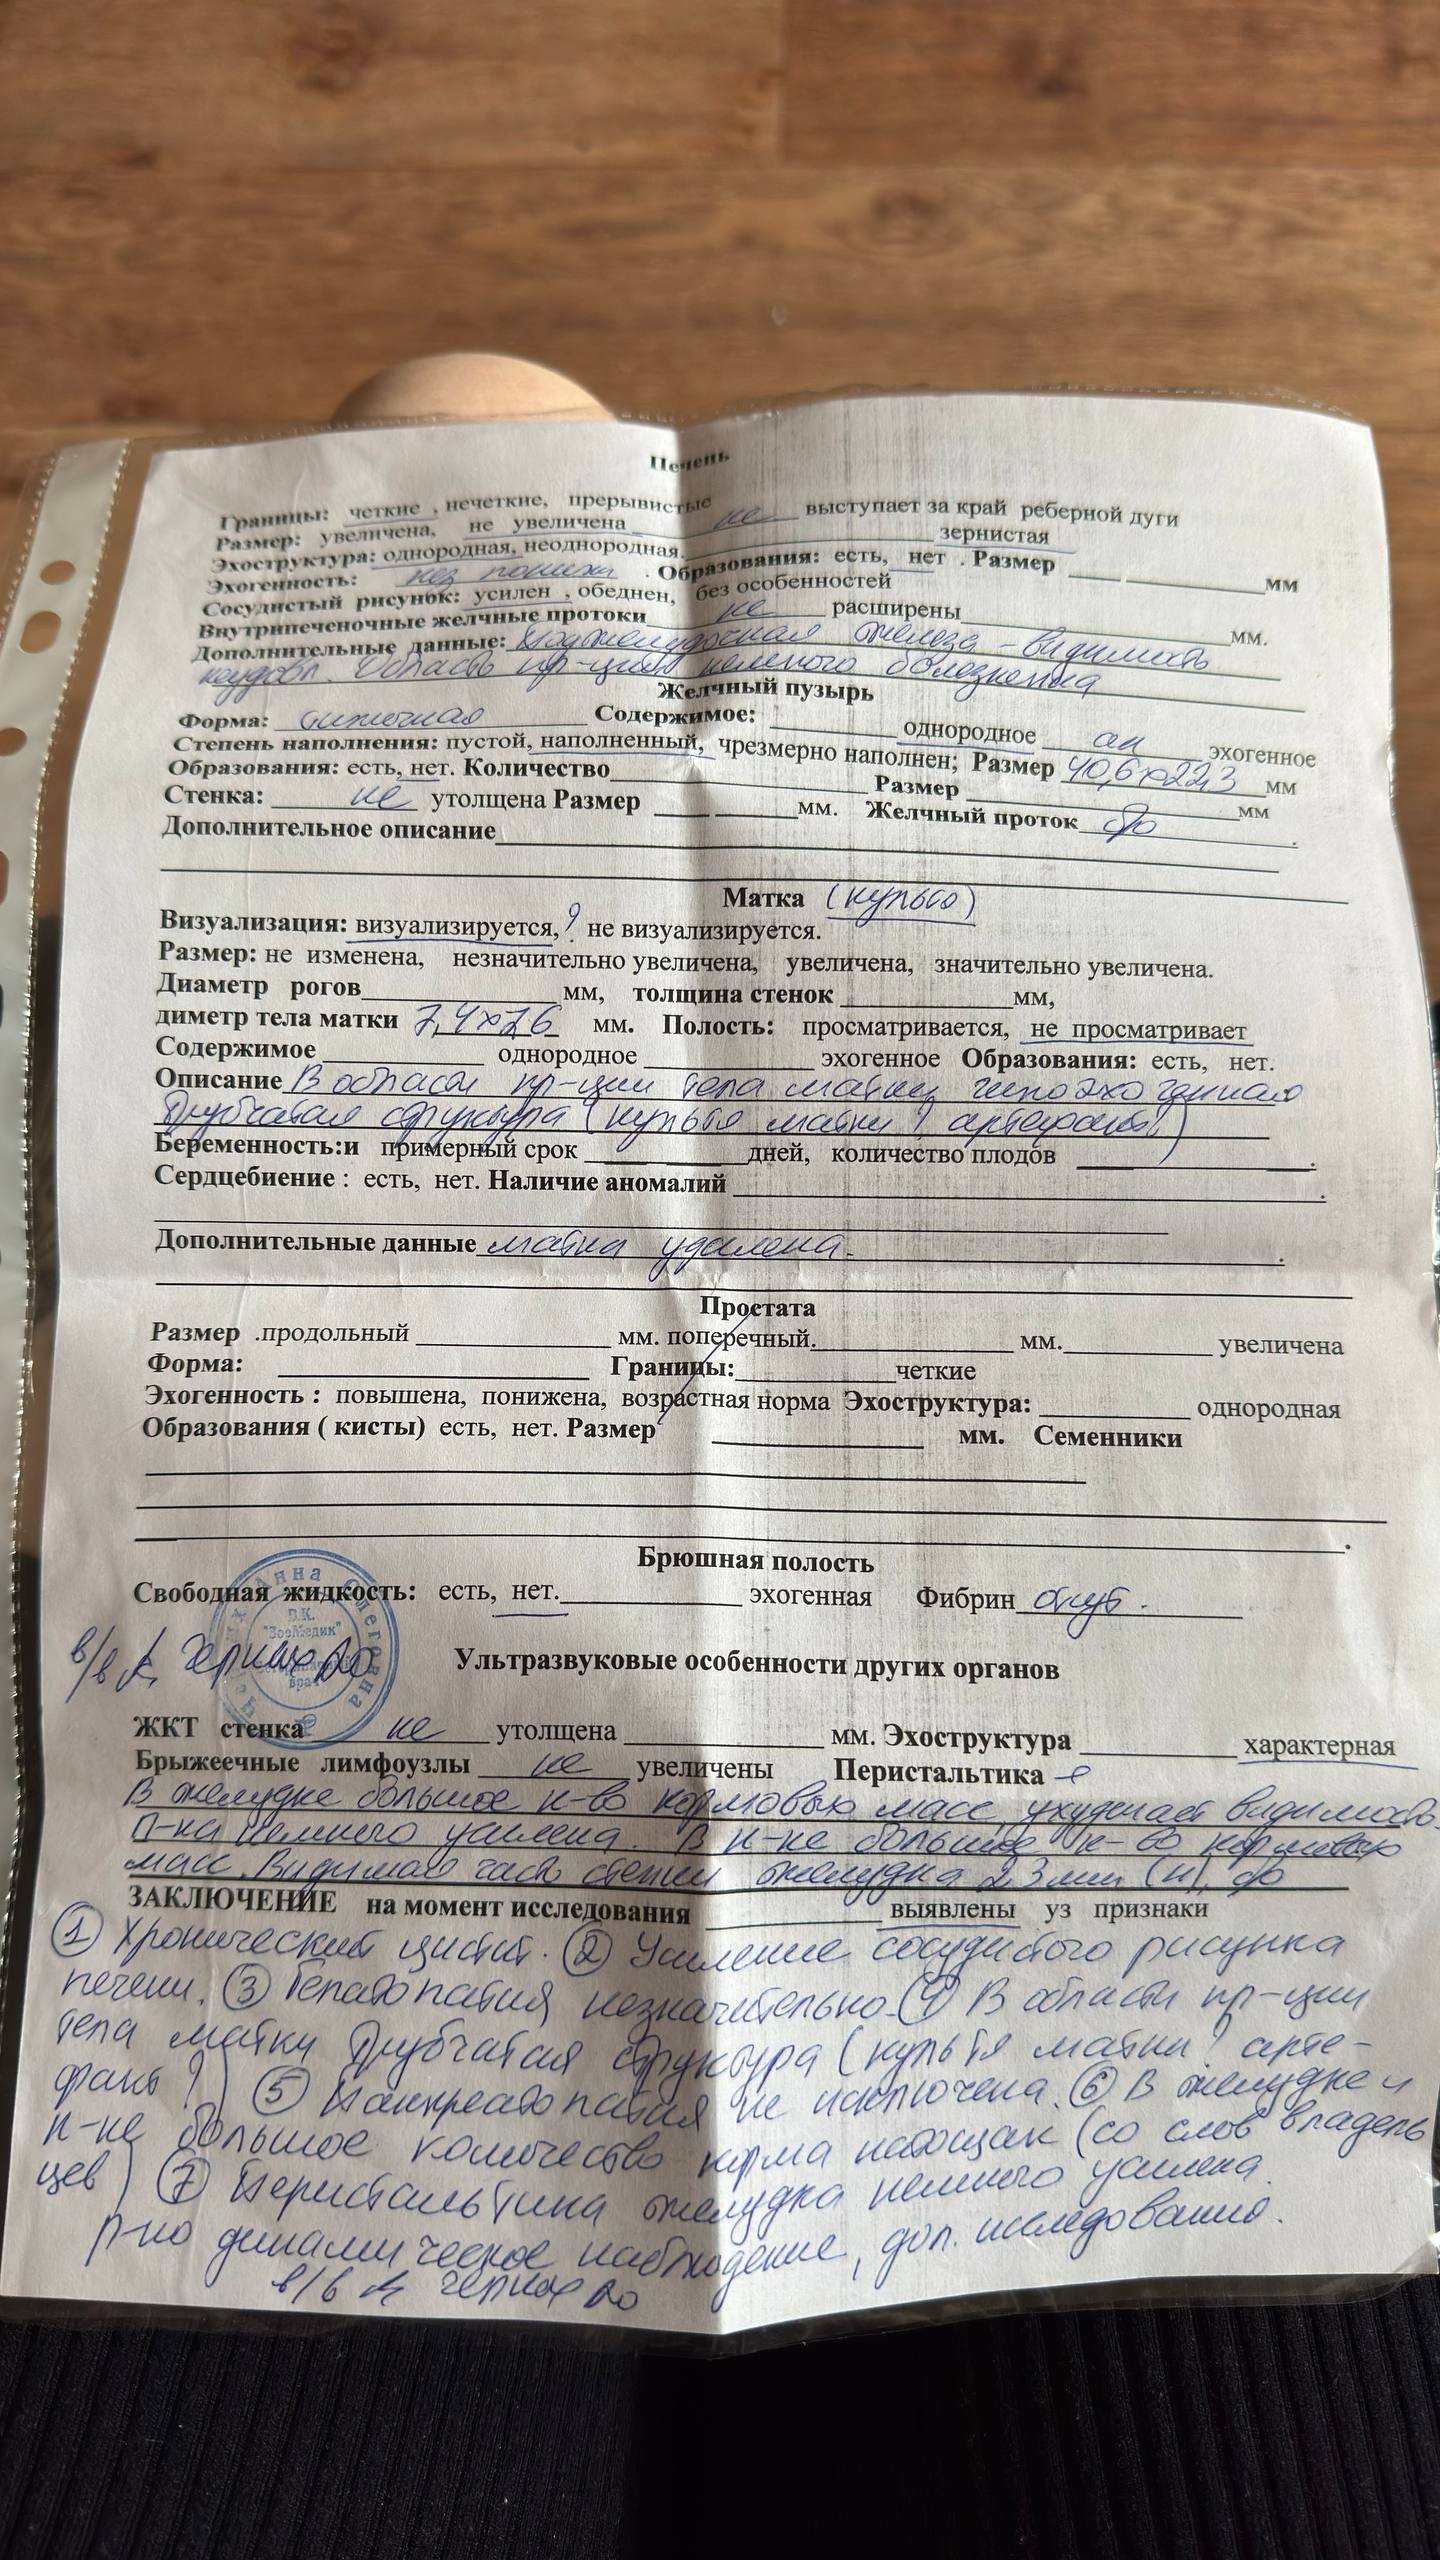 Печень
Границы: четкие , нечеткие, прерывистые
Размер: увеличена, не увеличена не выступает за край реберной дуги
Эхоструктура: однородная, неоднородная. зернистая
Эхогенность: нез пониж . Образования: есть, нет . Размер мм
Сосудистый рисунок: усилен , обеднен, без особенностей
Внутрипеченочные желчные протоки не расширены мм.
Дополнительные данные: Поджелудочная железа - видимость
неудовл. Область пр-ции немного болезненна
Желчный пузырь
Форма: типичная Содержимое: однородное ан эхогенное
Степень наполнения: пустой, наполненный, чрезмерно наполнен; Размер 40,6х22,3 мм
Образования: есть, нет. Количество Размер мм
Стенка: не утолщена Размер мм. Желчный проток б/о .
Дополнительное описание
Матка (культя)
Визуализация: визуализируется, ? не визуализируется.
Размер: не изменена, незначительно увеличена, увеличена, значительно увеличена.
Диаметр рогов мм, толщина стенок мм,
диметр тела матки 7,4х7,6 мм. Полость: просматривается, не просматривает
Содержимое однородное эхогенное Образования: есть, нет.
Описание В области пр-ции тела матки гипоэхогенная
трубчатая структура (культя матки? артефакт?)
Беременность:и примерный срок дней, количество плодов .
Сердцебиение : есть, нет. Наличие аномалий .
Дополнительные данные матка удалена. .
Простата
Размер .продольный мм. поперечный. мм. увеличена
Форма: Границы: четкие
Эхогенность : повышена, понижена, возрастная норма Эхоструктура: однородная
Образования ( кисты) есть, нет. Размер мм. Семенники
.
Брюшная полость
Свободная жидкость: есть, нет. эхогенная Фибрин отсут.
Анна Олеговна
В.К.
"ЗооМедик"
врач
в/в
Ультразвуковые особенности других органов
ЖКТ стенка не утолщена мм. Эхоструктура характерная
Брыжеечные лимфоузлы не увеличены Перистальтика
В желудке большое к-во кормовых масс, ухудшает видимость.
П-ка немного усилена. В к-ке большое к-во кормовых
масс. Видимая часть стенки желудка 2,3мм (н),
ЗАКЛЮЧЕНИЕ на момент исследования выявлены уз признаки
① Хронический цистит. ② Усиление сосудистого рисунка
печени. ③ Гепатопатия незначительно. ④ В области пр-ции
тела матки трубчатая структура (культя матки? арте-
факт?) ⑤ Панкреатопатия не исключена. ⑥ В желудке и
к-ке большое количество корма натощак (со слов владель
цев) ⑦ Перистальтика желудка немного усилена.
Р-но динамическое наблюдение, доп. исследования.
в/в